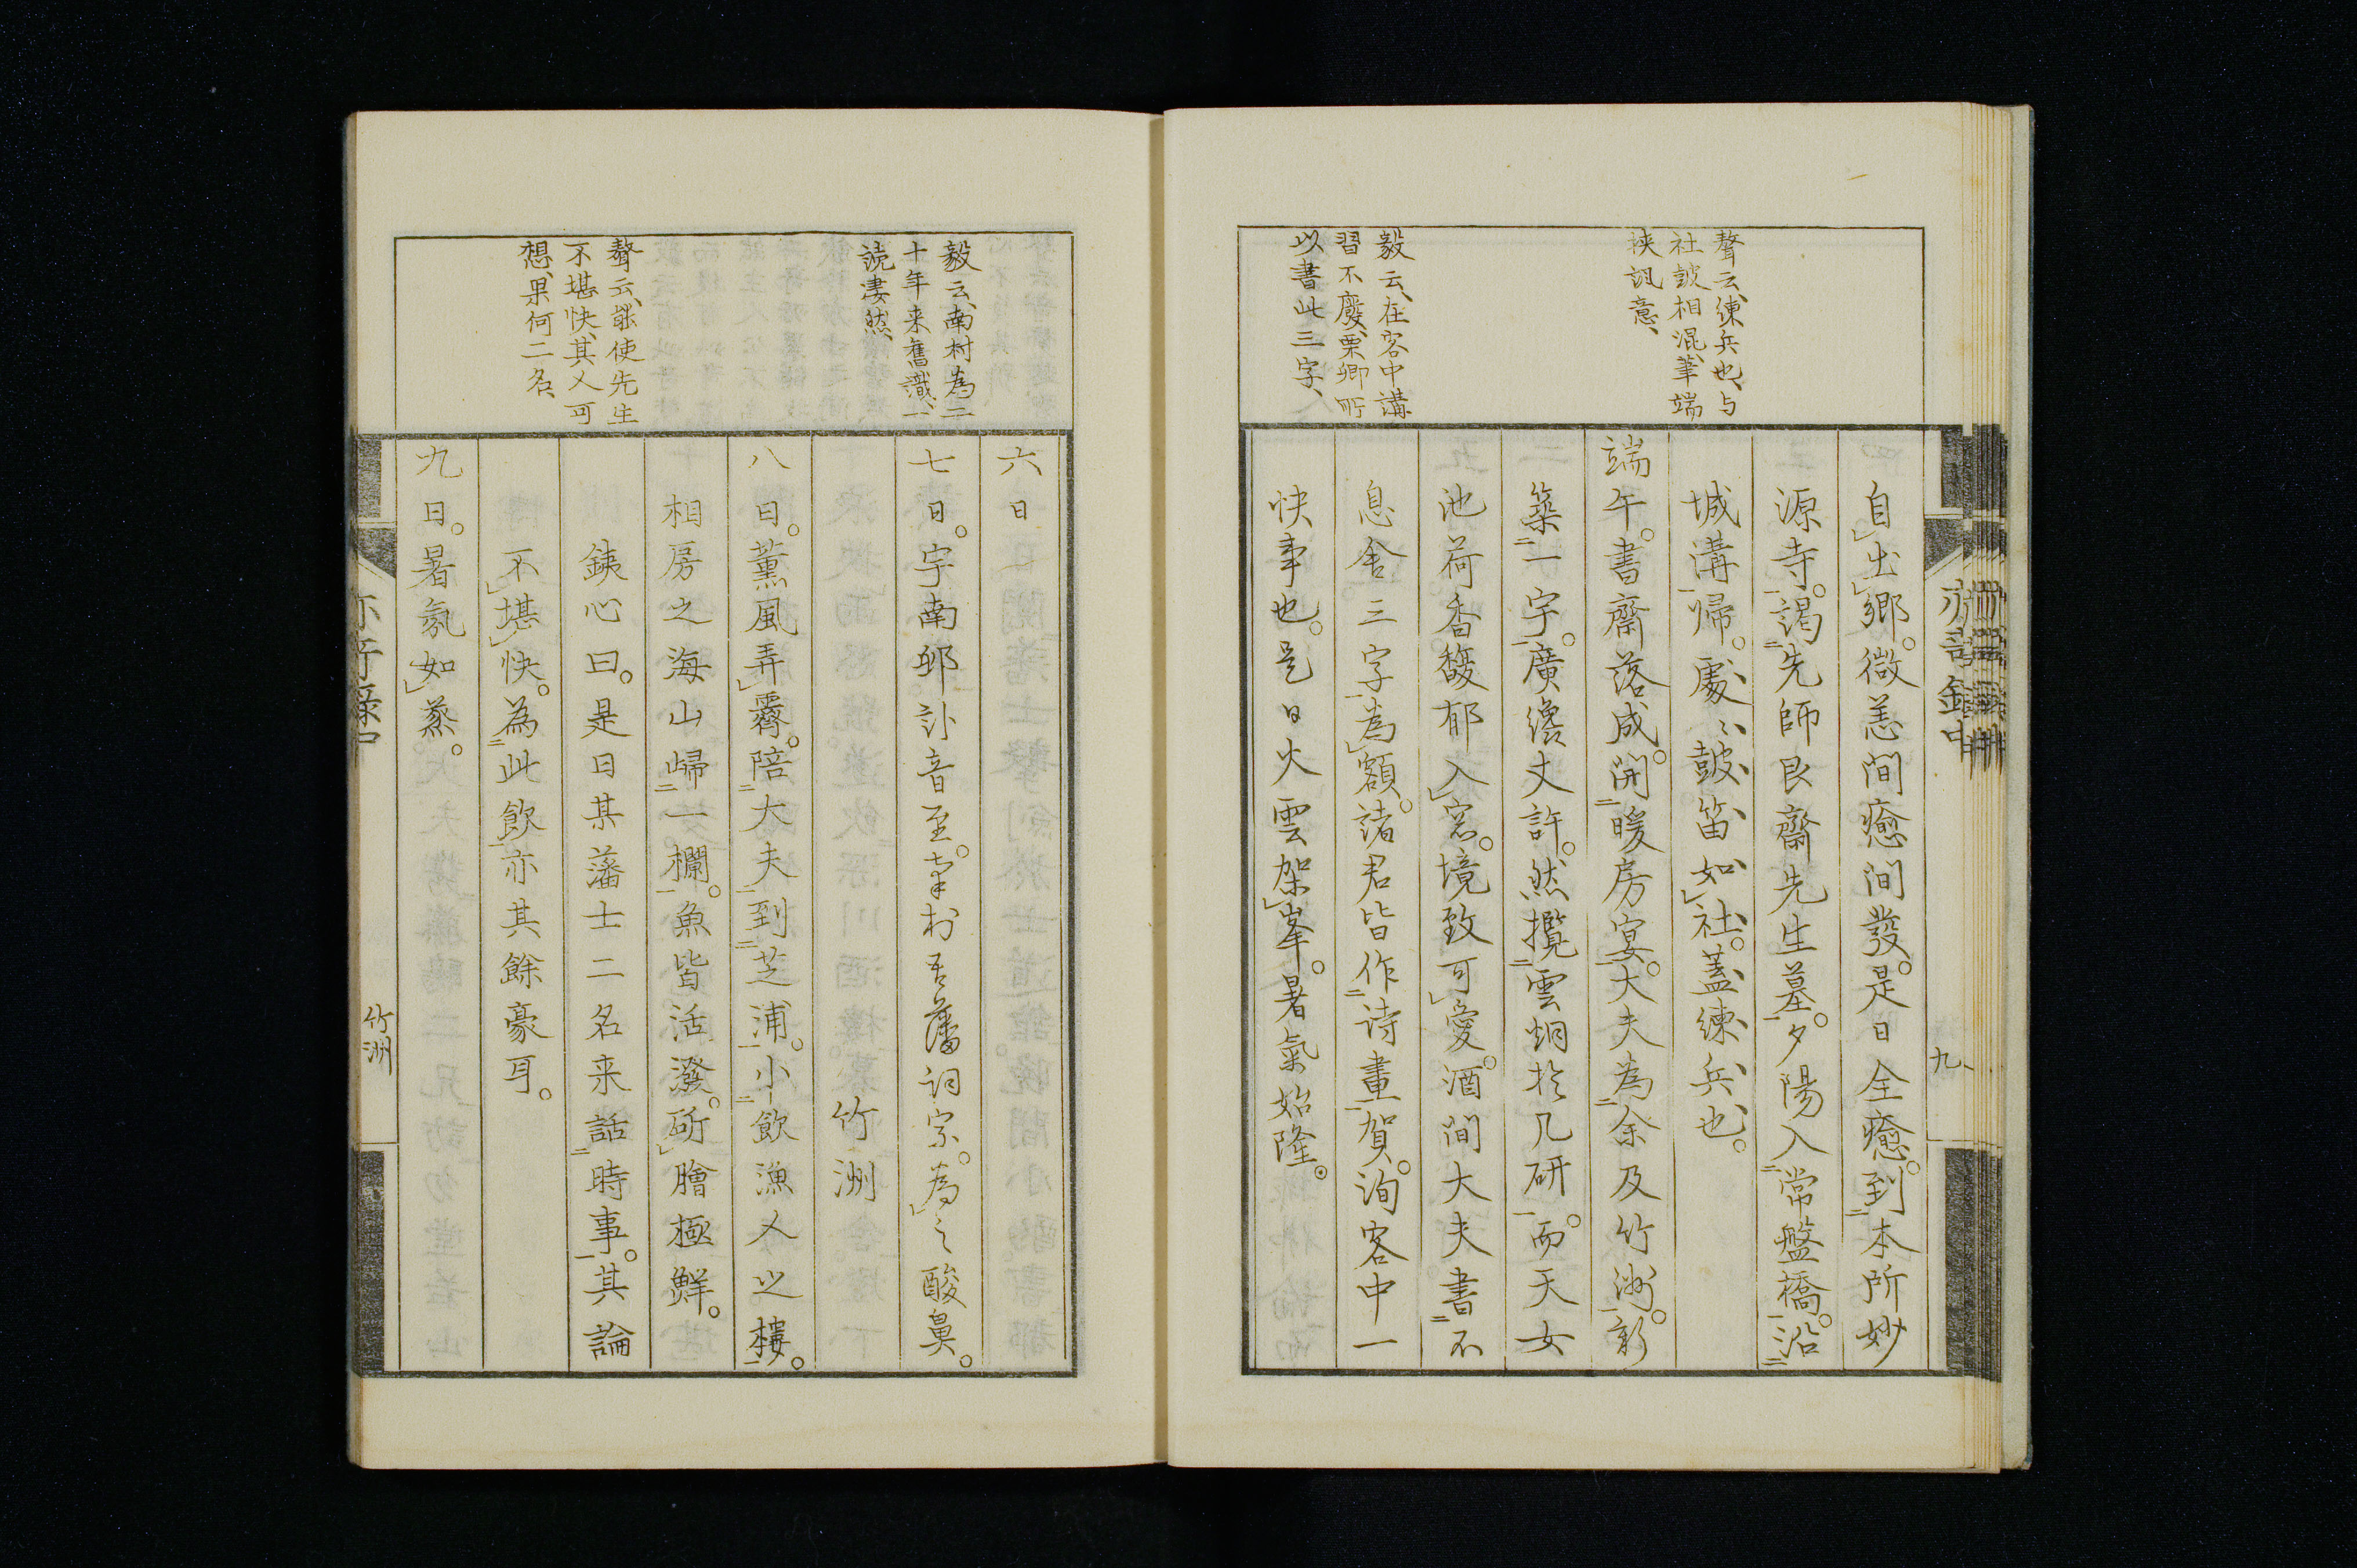 聱云、練兵也、与
社皷相混、筆端
挟諷意、
毅云、在客中講
習不廢、栗卿所
以書此三字、
自出鄉。微恙間癒間發。是日全癒。到本所妙
源寺。謁先師艮齋先生墓。夕陽入常盤橋。沿
城溝歸。處、皷笛如社。蓋練兵也。
端午。書齋落成。開暖房宴。大夫為余及竹洲。新
築一宇。廣纔丈許。然攬雲烟於几研。而天女
池荷香馥郁入窓。境致可愛。酒間大夫書不
息舍三字為額。諸君皆作詩畫賀。洵客中一
快事也。是日火雲架峯。暑氣始隆。
九、
毅云、南村為二
十年来舊識、一
読凄然、
聱云、能使先生
不堪快、其人可
想、果何二名、
六日
七日。宇南邨訃音至。南村吾藩詞宗。為之酸鼻。
竹洲
八日。薫風弄霽。陪大夫到芝浦。小飲漁人之樓。
相房之海山歸一欄。魚皆活潑。斫膾極鮮。
銕心曰。是日某藩士二名来話時事。其論
不堪快。為此飲亦其餘豪耳。
九日。暑氣如蒸。
竹洲